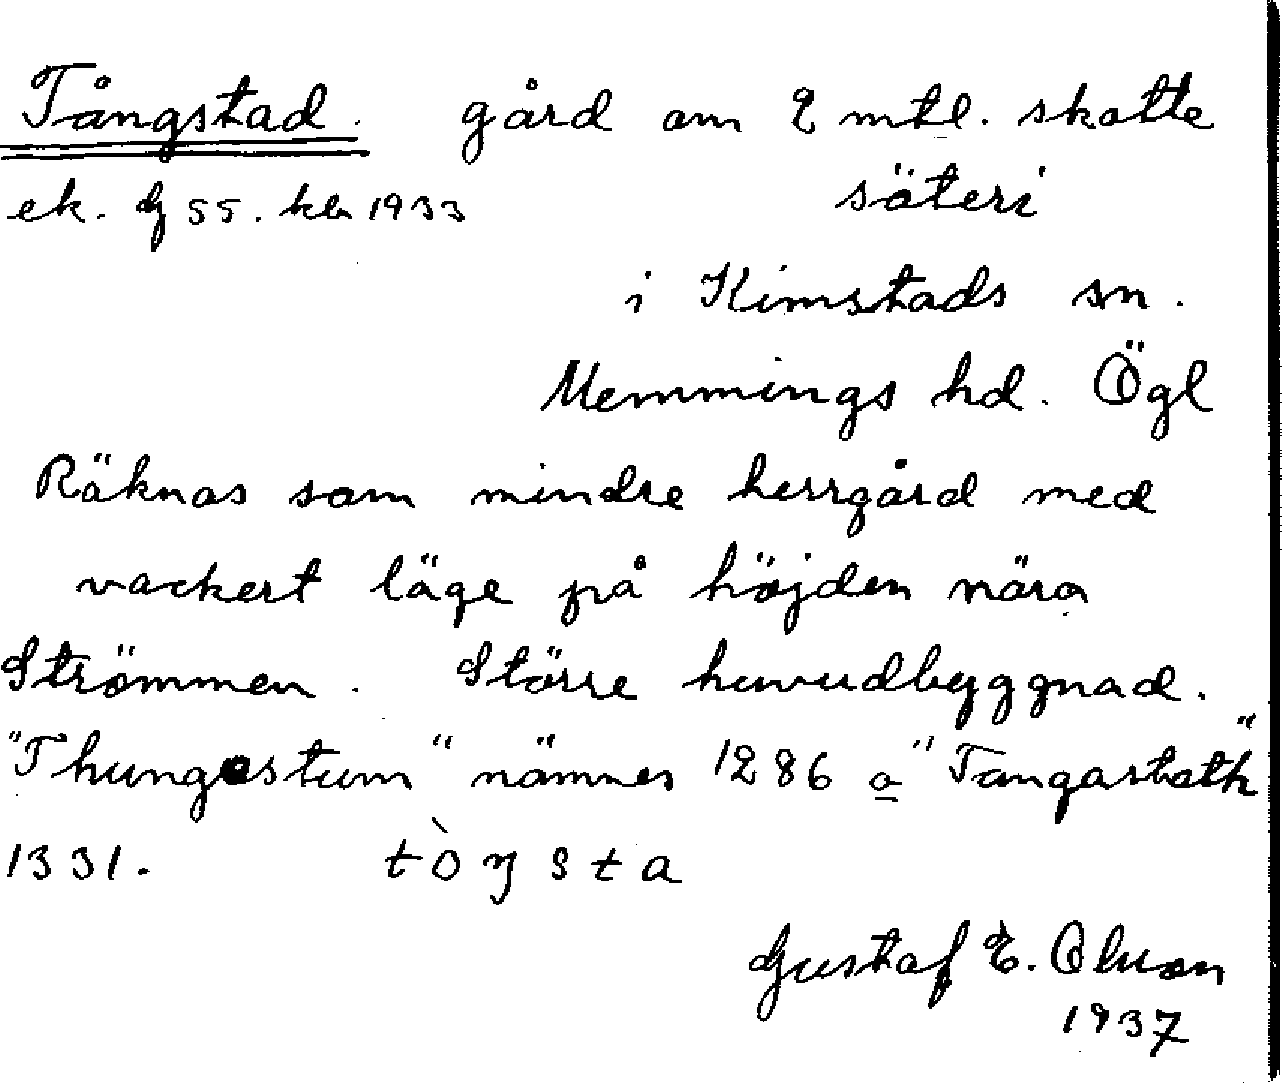 Tångstad. gård om 2 mtl. skatte
säteri
ek. bl 55. kln 1933
i Kimstads sn.
Memmings hd. Ögl
Räknas som mindre herrgård med
vackert läge på höjden nära
Strömmen. Större huvudbyggnad.
"Thungostum" nämnes 1286 o "Tangastath"
1331. tòŋsta
Gustaf E. Olsson
1937